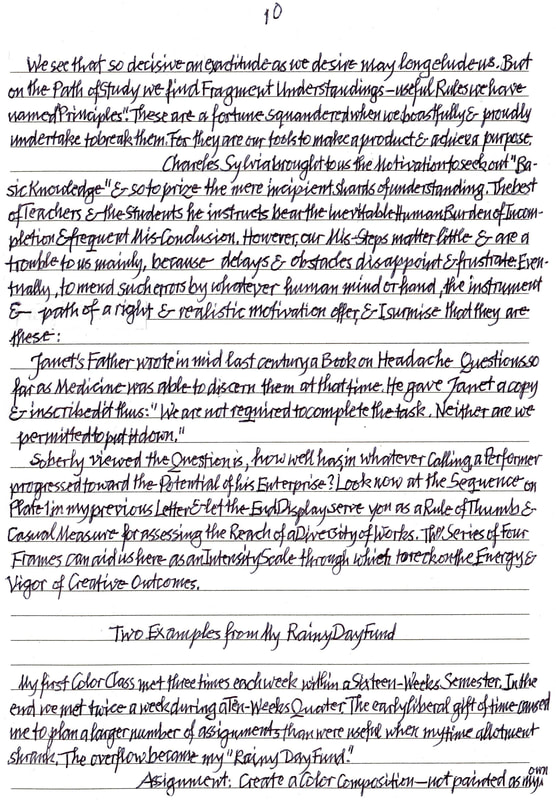 10
We see that so decisive an exactitude as we desire may long elude us. But
on the Path of Study we find Fragment Understandings—useful Rules we have
named "Principles". These are a fortune squandered when we boastfully & proudly
undertake to break them. For they are our tools to make a product & achieve a purpose.
Chareles Sylvia brought to us the Motivation to seek out "Ba-
sic Knowledge" & so to prize the mere incipient shards of understanding. The best
of Teachers & the students he instructs bear the inevitable Human Burden of Incom-
pletion & frequent Mis-Conclusion. However, our Mis-Steps matter little & are a
trouble to us mainly, because delays & obstacles disappoint & frustrate. Even-
tually, to mend such errors by whatever human mind or hand, the instrument
& path of a right & realistic motivation offer, & I surmise that they are
these:
Janet's Father wrote in mid last century a Book on Headache Questions so
far as Medicine was able to discern them at that time. He gave Janet a copy
& inscribed it thus: "We are not required to complete the task. Neither are we
permitted to put it down."
Soberly viewed the Question is, how well has, in whatever Calling, a Performer
progressed toward the Potential of his Enterprise? Look now at the Sequence on
Plate 1 in my previous Letter & let the End Display serve you as a Rule of Thumb &
Casual Measure for assessing the Reach of a Diversity of Works. This Series of Four
Frames can aid us here as an Intensity Scale through which to reckon the Energy &
Vigor of Creative Outcomes.
Two Examples from My Rainy Day Fund
My first Color Class met three times each week within a Sixteen-Weeks Semester. In the
end we met twice a week during a Ten-Weeks Quater. The early liberal gift of time caused
me to plan a larger number of assignments than were useful when my time allotment
shrank. The overflow became my "Rainy Day Fund."
Assignment: Create a Color Composition—not painted as my own